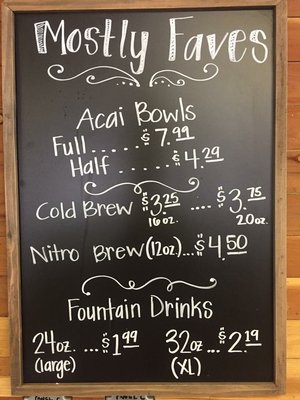 Mostly Faves
Acai Bowls
Full ..... $7.99
Half ..... $4.29
Cold Brew $3.25 .... $3.75
16oz. 20oz.
Nitro Brew (12oz)... $4.50
Fountain Drinks
24oz. ... $1.99 32oz ... $2.19
(large) (XL)